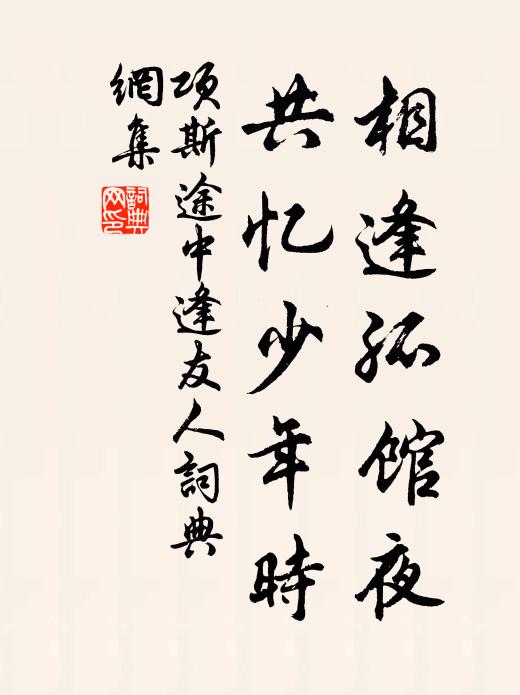 相逢孤馆夜
共忆少年時
项斯途中逢友人詞典
網集
詞典网印